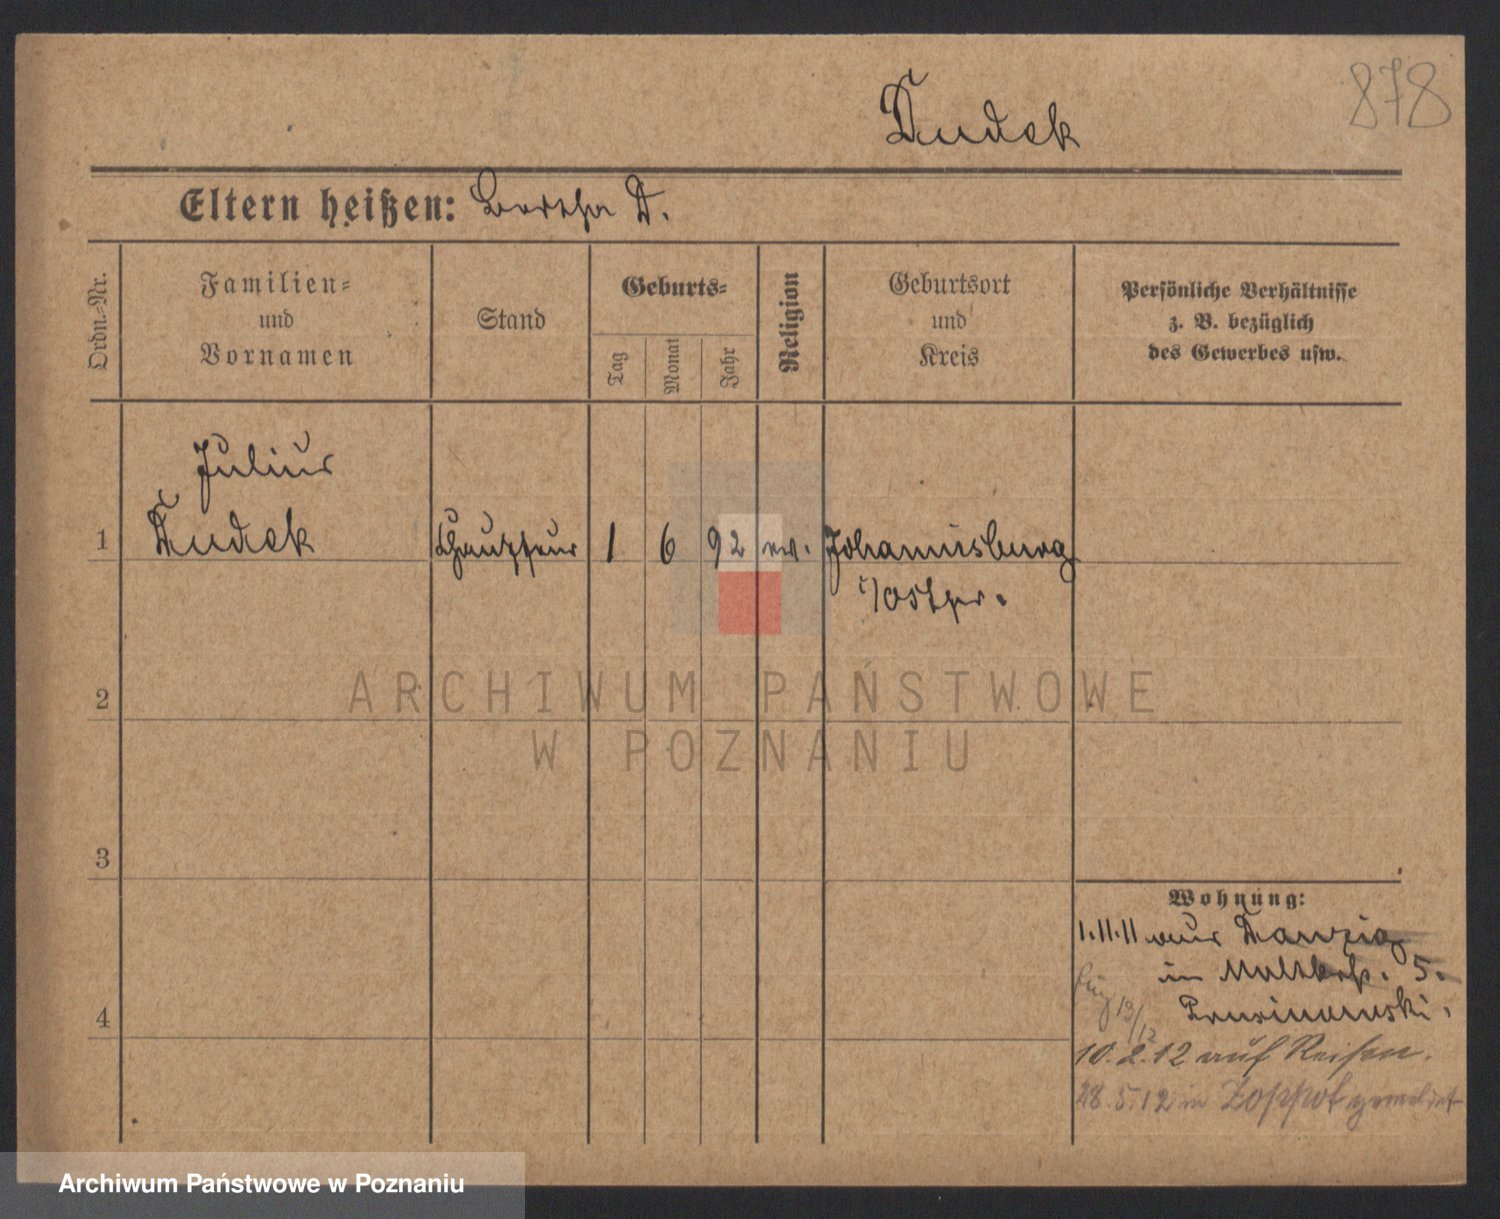 878
Dudek
Eltern heißen: Bertha D.
Ordn.-Nr.
Familien-
und
Vornamen
Stand
Geburts-
Tag
Monat
Jahr
Religion
Geburtsort
und
Kreis
Persönliche Verhältnisse
z. B. bezüglich
des Gewerbes usw.
Julius
1 Dudek Chauffeur 1 6 92 ev. Johannisburg
i/Ostpr.
2
ARCHIWUM PAŃSTWOWE
W POZNANIU
3
Wohnung:
1.11.11 aus Danzig
in Moltkestr. 5.
13/12
4
10.2.12 auf Reisen.
28.5.12 in Zoppot gemeldet
Archiwum Państwowe w Poznaniu